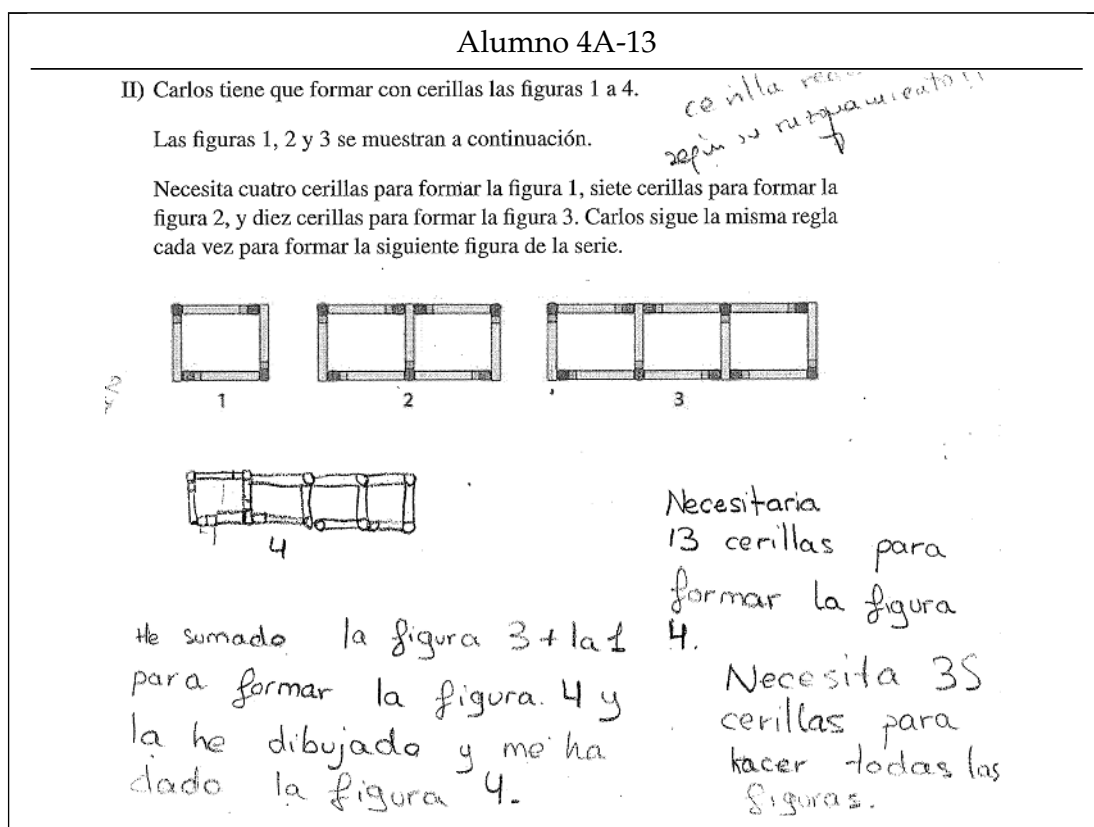 Alumno 4A-13
II) Carlos tiene que formar con cerillas las figuras 1 a 4.
cerilla
según su
Las figuras 1, 2 y 3 se muestran a continuación.
Necesita cuatro cerillas para formar la figura 1, siete cerillas para formar la
figura 2, y diez cerillas para formar la figura 3. Carlos sigue la misma regla
cada vez para formar la siguiente figura de la serie.
1 2 3
4
Necesitaria
13 cerillas para
formar la figura
4.
He sumado la figura 3 + la 1
para formar la figura. 4 y
la he dibujado y me ha
dado la figura 4.
Necesita 35
cerillas para
hacer todas las
figuras.